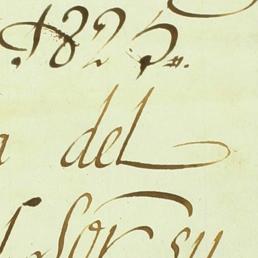 1825.
a del
Sor su